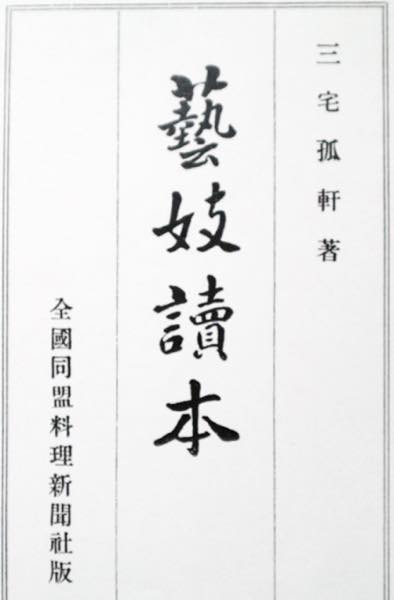 三宅孤軒著
藝妓讀本
全國同盟料理新聞社版